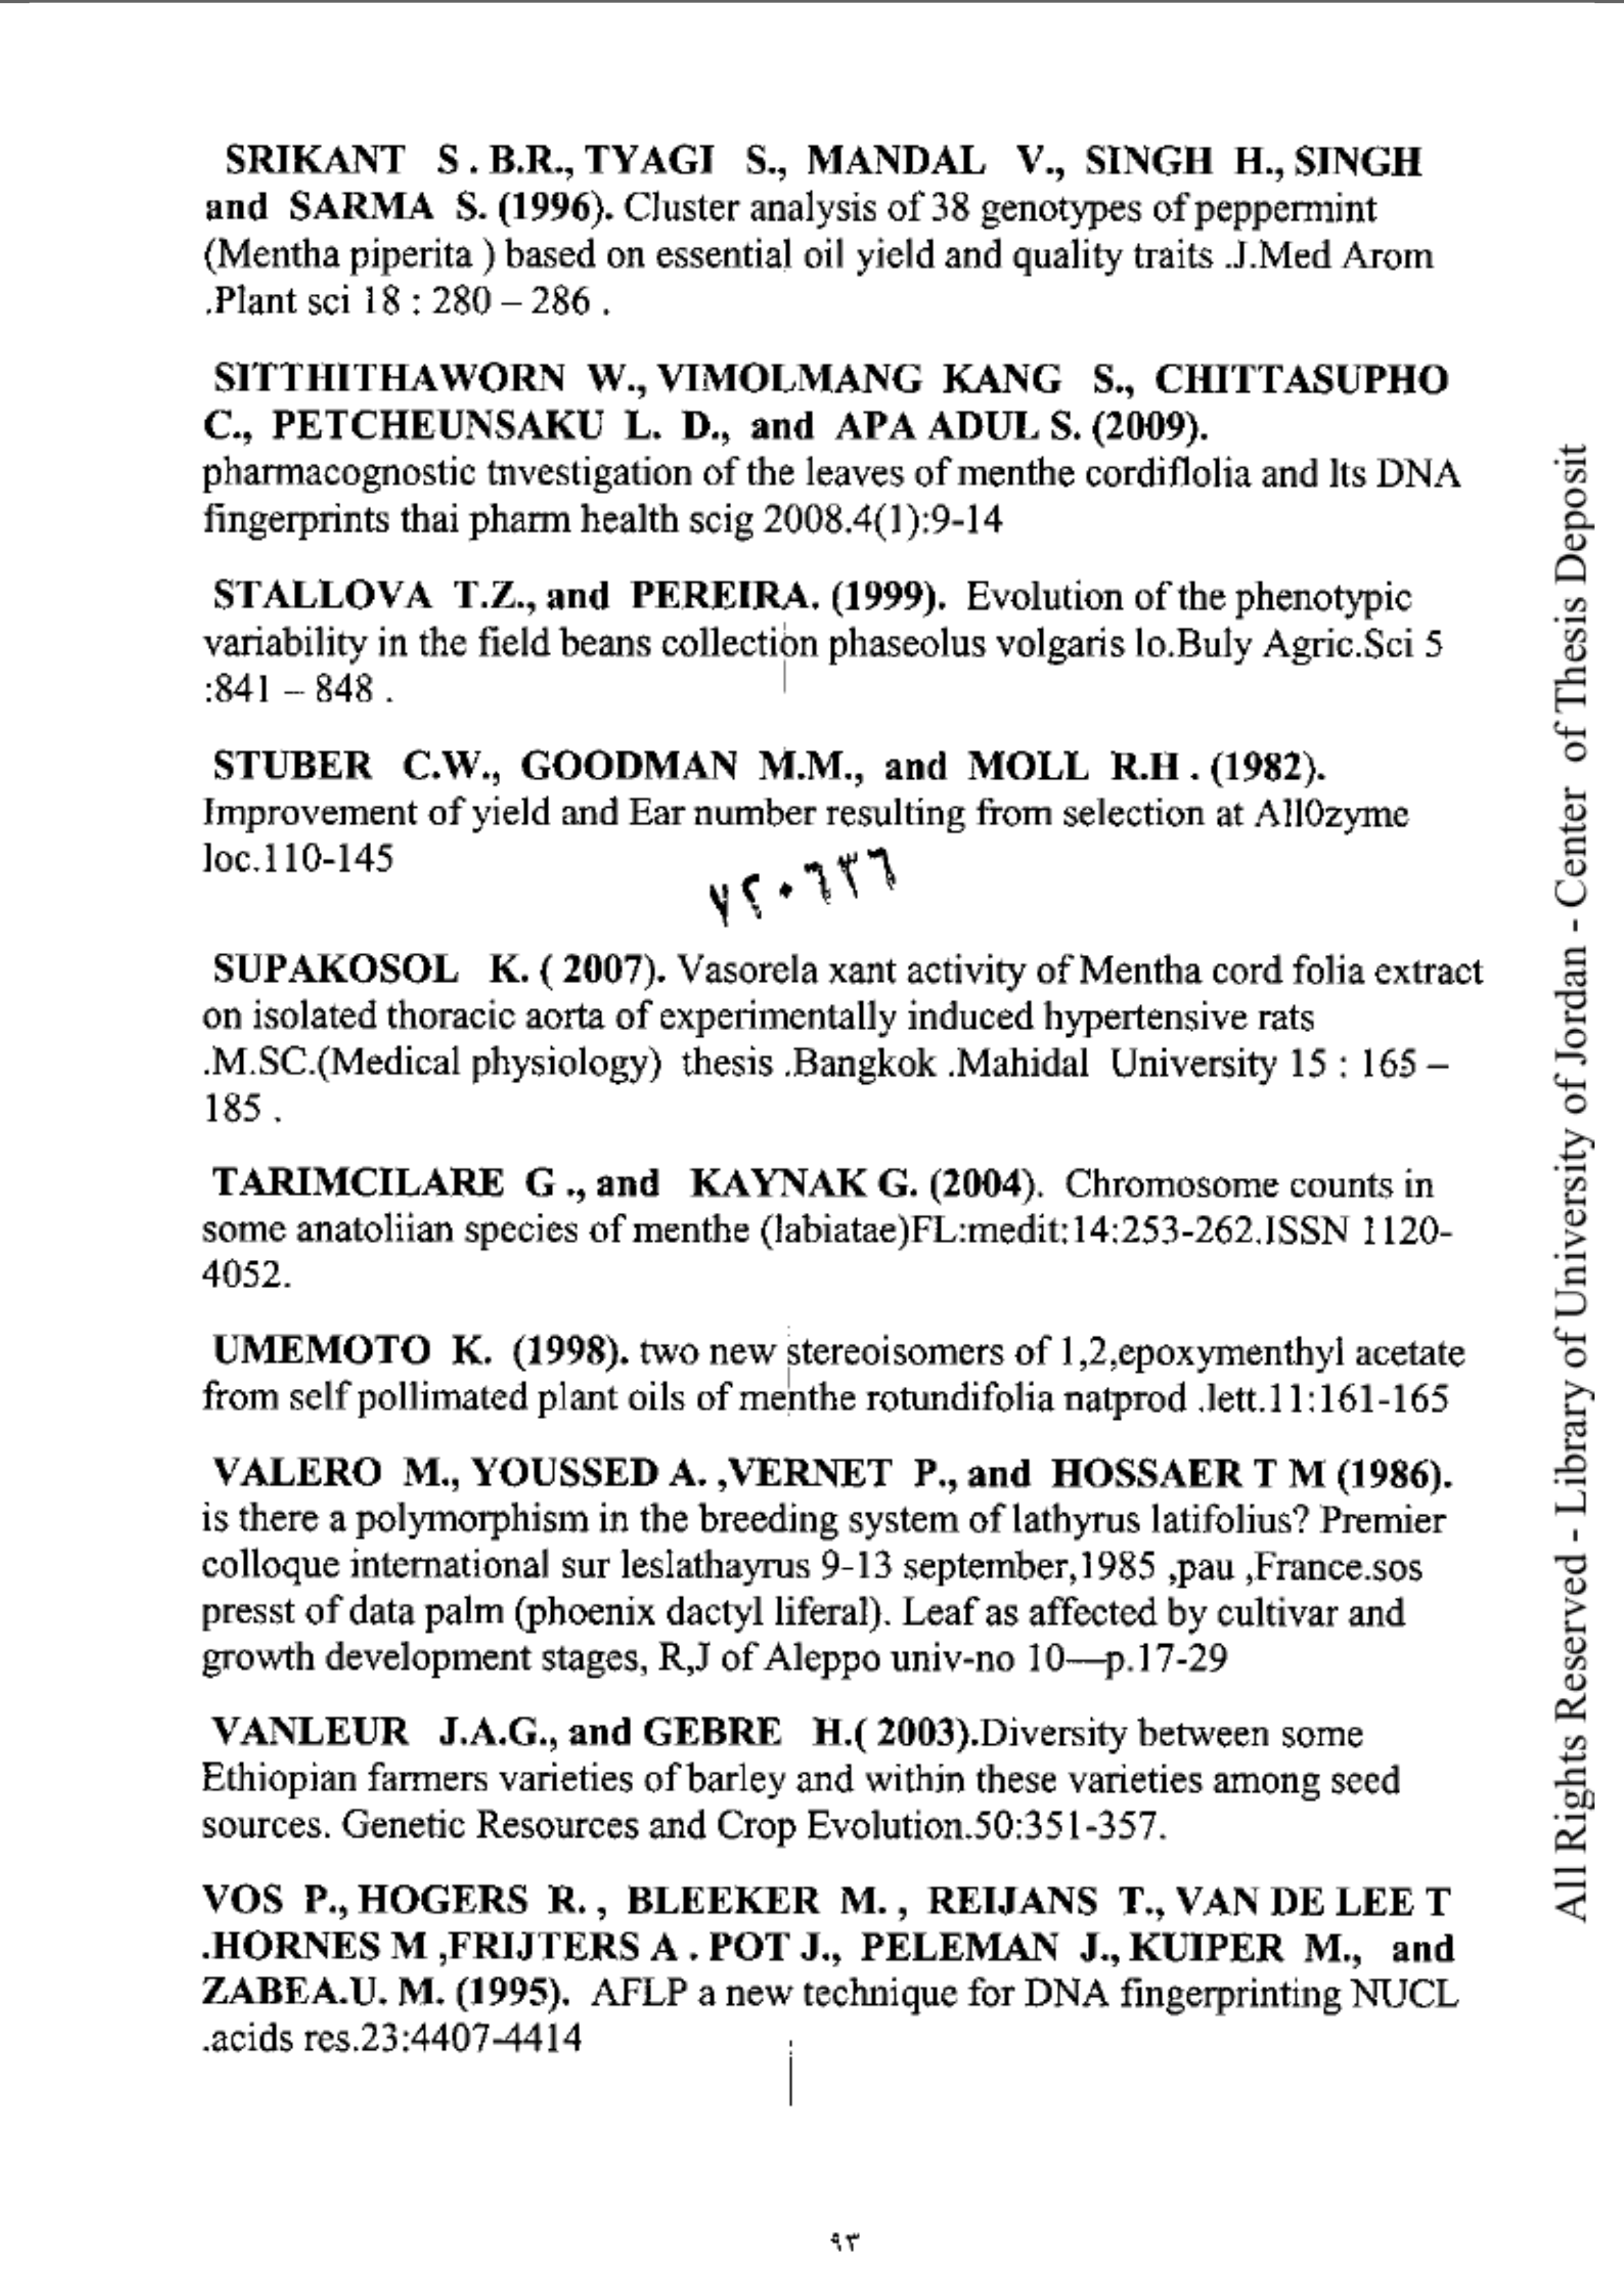 SRIKANT S . B.R., TYAGI S., MANDAL V., SINGH H., SINGH
and SARMA S. (1996). Cluster analysis of 38 genotypes of peppermint
(Mentha piperita ) based on essential oil yield and quality traits .J.Med Arom
.Plant sci 18 : 280 – 286 .
SITTHITHAWORN W., VIMOLMANG KANG S., CHITTASUPHO
C., PETCHEUNSAKU L. D., and APA ADUL S. (2009).
pharmacognostic tnvestigation of the leaves of menthe cordiflolia and Its DNA
fingerprints thai pharm health scig 2008.4(1):9-14
STALLOVA T.Z., and PEREIRA. (1999). Evolution of the phenotypic
variability in the field beans collection phaseolus volgaris lo.Buly Agric.Sci 5
:841 – 848 .
STUBER C.W., GOODMAN M.M., and MOLL R.H . (1982).
Improvement of yield and Ear number resulting from selection at All0zyme
loc.110-145
٧٢٠٦٣٦
SUPAKOSOL K. ( 2007). Vasorela xant activity of Mentha cord folia extract
on isolated thoracic aorta of experimentally induced hypertensive rats
.M.SC.(Medical physiology) thesis .Bangkok .Mahidal University 15 : 165 –
185 .
TARIMCILARE G ., and KAYNAK G. (2004). Chromosome counts in
some anatoliian species of menthe (labiatae)FL:medit:14:253-262.ISSN 1120-
4052.
UMEMOTO K. (1998). two new stereoisomers of 1,2,epoxymenthyl acetate
from self pollimated plant oils of menthe rotundifolia natprod .lett.11:161-165
VALERO M., YOUSSED A. ,VERNET P., and HOSSAER T M (1986).
is there a polymorphism in the breeding system of lathyrus latifolius? Premier
colloque international sur leslathayrus 9-13 september,1985 ,pau ,France.sos
presst of data palm (phoenix dactyl liferal). Leaf as affected by cultivar and
growth development stages, R,J of Aleppo univ-no 10—p.17-29
VANLEUR J.A.G., and GEBRE H.( 2003).Diversity between some
Ethiopian farmers varieties of barley and within these varieties among seed
sources. Genetic Resources and Crop Evolution.50:351-357.
VOS P., HOGERS R. , BLEEKER M. , REIJANS T., VAN DE LEE T
.HORNES M ,FRIJTERS A . POT J., PELEMAN J., KUIPER M., and
ZABEA.U. M. (1995). AFLP a new technique for DNA fingerprinting NUCL
.acids res.23:4407-4414
٩٣
All Rights Reserved - Library of University of Jordan - Center of Thesis Deposit